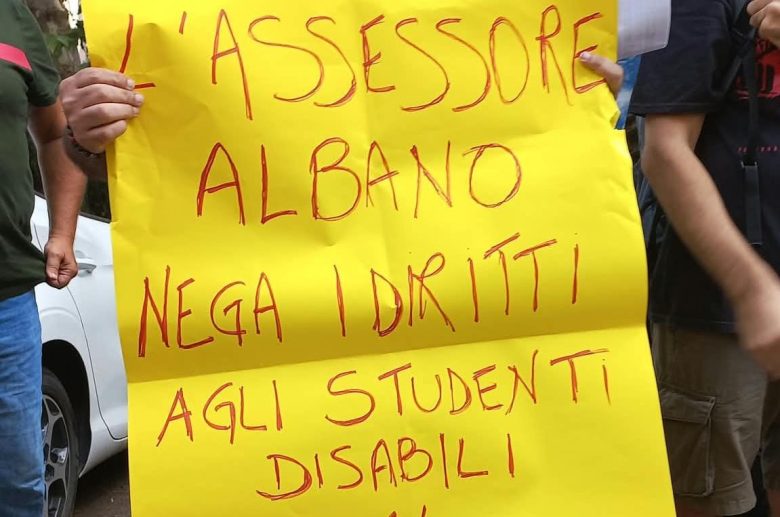 L'ASSESSORE
ALBANO
NEGA I DIRITTI
AGLI STUDENTI
DISABILI